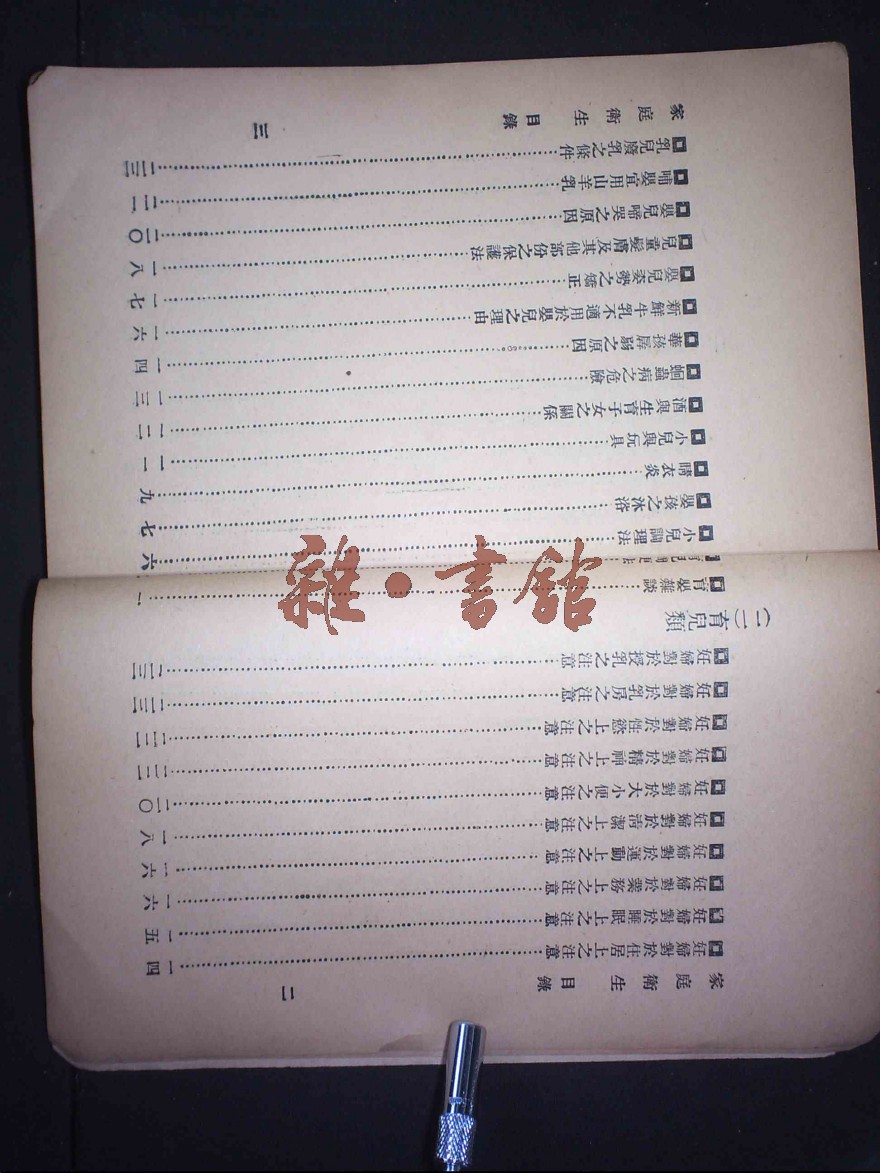 家庭衛生 目錄 二
妊婦對於住居上之注意 一四
妊婦對於睡眠上之注意 一五
妊婦對於業務上之注意 一六
妊婦對於運動上之注意 一六
妊婦對於清潔上之注意 一八
妊婦對於大小便之注意 二〇
妊婦對於精神上之注意 二二
妊婦對於性慾上之注意 二二
妊婦對於乳房之注意 二三
妊婦對於授乳之注意 二三
（二）育兒類
育嬰雜談 一
小兒調理法 六
嬰孩之沐浴 七
睛衣炎 九
小兒與玩具 一一
酒與生育子女之關係 一二
蛔蟲病之危險 一三
華孩孱弱之原因 一四
新鮮牛乳不適用於嬰兒之理由 一六
嬰兒姿勢之矯正 一七
兒童髮膚及其他部份之保護法 一八
嬰兒啼哭之原因 二〇
哺嬰宜用山羊乳 二一
乳兒廢乳之條件 二三
家庭衛生 目錄 三
雜·書館